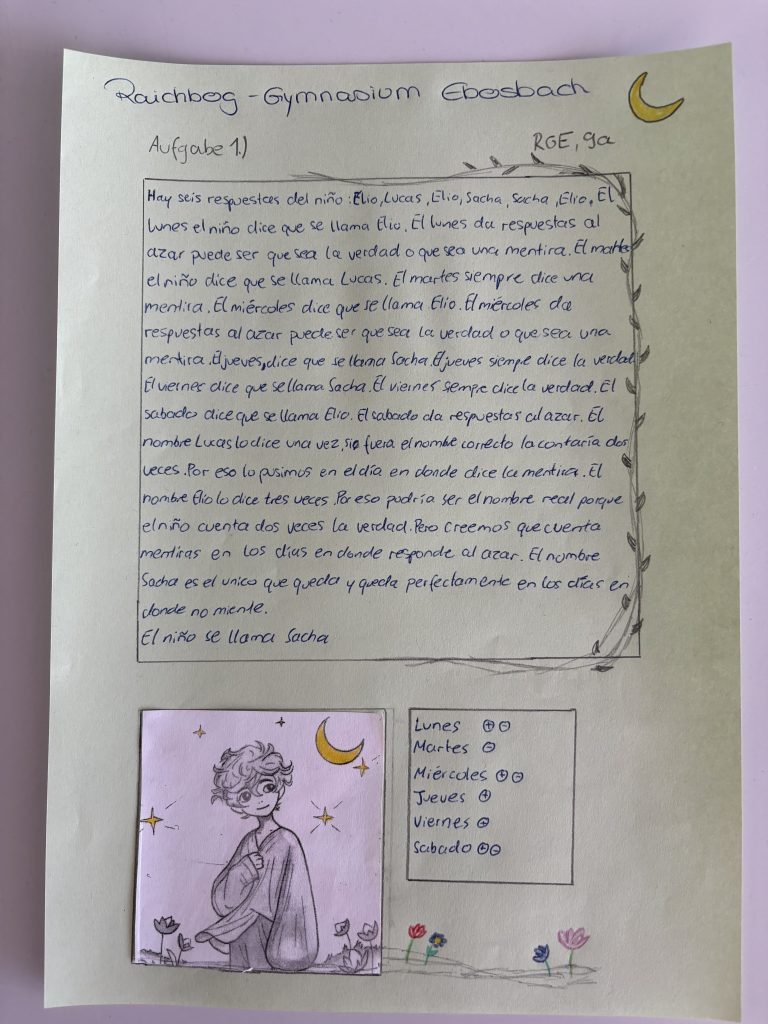 Raichberg - Gymnasium Ebersbach
Aufgabe 1.)
RGE, 9a
Hay seis respuestas del niño : Elio, Lucas, Elio, Sacha, Sacha, Elio, El
lunes el niño dice que se llama Elio. El lunes da respuestas al
azar puede ser que sea la verdad o que sea una mentira. El martes
el niño dice que se llama Lucas. El martes siempre dice una
mentira. El miércoles dice que se llama Elio. El miércoles da
respuestas al azar puede ser que sea la verdad o que sea una
mentira. El jueves, dice que se llama Sacha. El jueves siempe dice la verdad.
El viernes dice que se llama Sacha. El viernes sempre dice la verdad. El
sabado dice que se llama Elio. El sabado da respuestas al azar. El
nombre Lucas lo dice una vez, si fuera el nombre correcto la contaría dos
veces. Por eso lo pusimos en el día en donde dice la mentira. El
nombre Elio lo dice tres veces. Por eso podría ser el nombre real porque
el niño cuenta dos veces la verdad. Pero creemos que cuenta
mentiras en los días en donde responde al azar. El nombre
Sacha es el unico que queda y queda perfectamente en los días en
donde no miente.
El niño se llama Sacha
Lunes ⊕⊖
Martes ⊖
Miércoles ⊕⊖
Jueves ⊕
Viernes ⊕
Sabado ⊕⊖